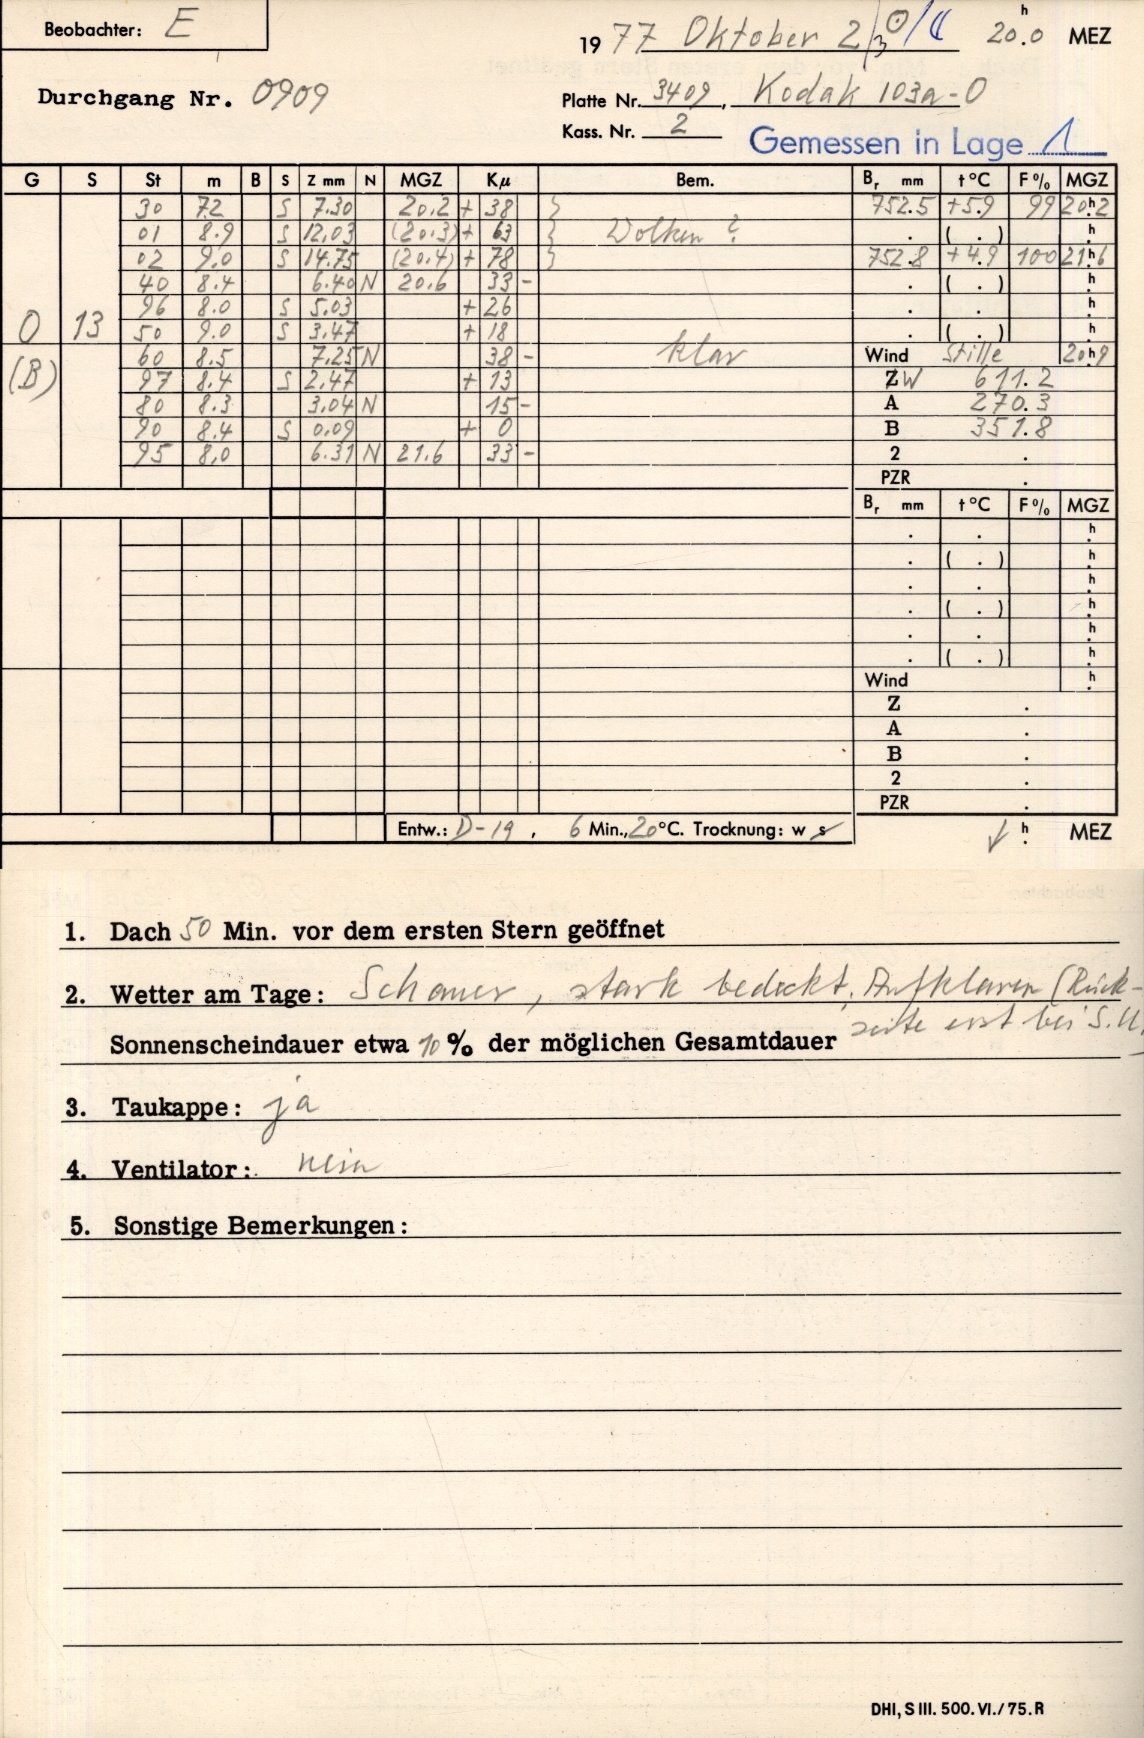 Beobachter: E
1977 Oktober 2/3 ⊙/☾ 20.0 h MEZ
Durchgang Nr. 0909
Platte Nr. 3409, Kodak 103a-O
Kass. Nr. 2
Gemessen in Lage 1
G S St m B S Z mm N MGZ Kμ Bem. Br mm t °C F% MGZ
30 7.2 S 7.30 20.2 + 38 } 752.5 +5.9 99 20h2
01 8.9 S 12.03 (20.3) + 63 } Wolken ? . ( . ) h
02 9.0 S 14.75 (20.4) + 78 } 752.8 +4.9 100 21h6
40 8.4 6.40 N 20.6 33 - . ( . ) h
96 8.0 S 5.03 + 26 . . h
O 13 50 9.0 S 3.47 + 18 . ( . ) h
60 8.5 7.25 N 38 - klar Wind Stille 20h9
(B) 97 8.4 S 2.47 + 13 ZW 611.2
80 8.3 3.04 N 15 - A 270.3
90 8.4 S 0.09 + 0 B 351.8
95 8.0 6.31 N 21.6 33 - 2 .
PZR .
Br mm t °C F% MGZ
. . h
. ( . ) h
. . h
. ( . ) h
. . h
. ( . ) h
Wind h
Z .
A .
B .
2 .
PZR .
Entw.: D-19, 6 Min., 20°C. Trocknung: w s h MEZ
1. Dach 50 Min. vor dem ersten Stern geöffnet
2. Wetter am Tage: Schauer, stark bedeckt, Aufklaren (Rück-
seite erst bei S.U.
Sonnenscheindauer etwa 10% der möglichen Gesamtdauer
3. Taukappe: ja
4. Ventilator: nein
5. Sonstige Bemerkungen:
DHI, S III. 500. VI./75. R